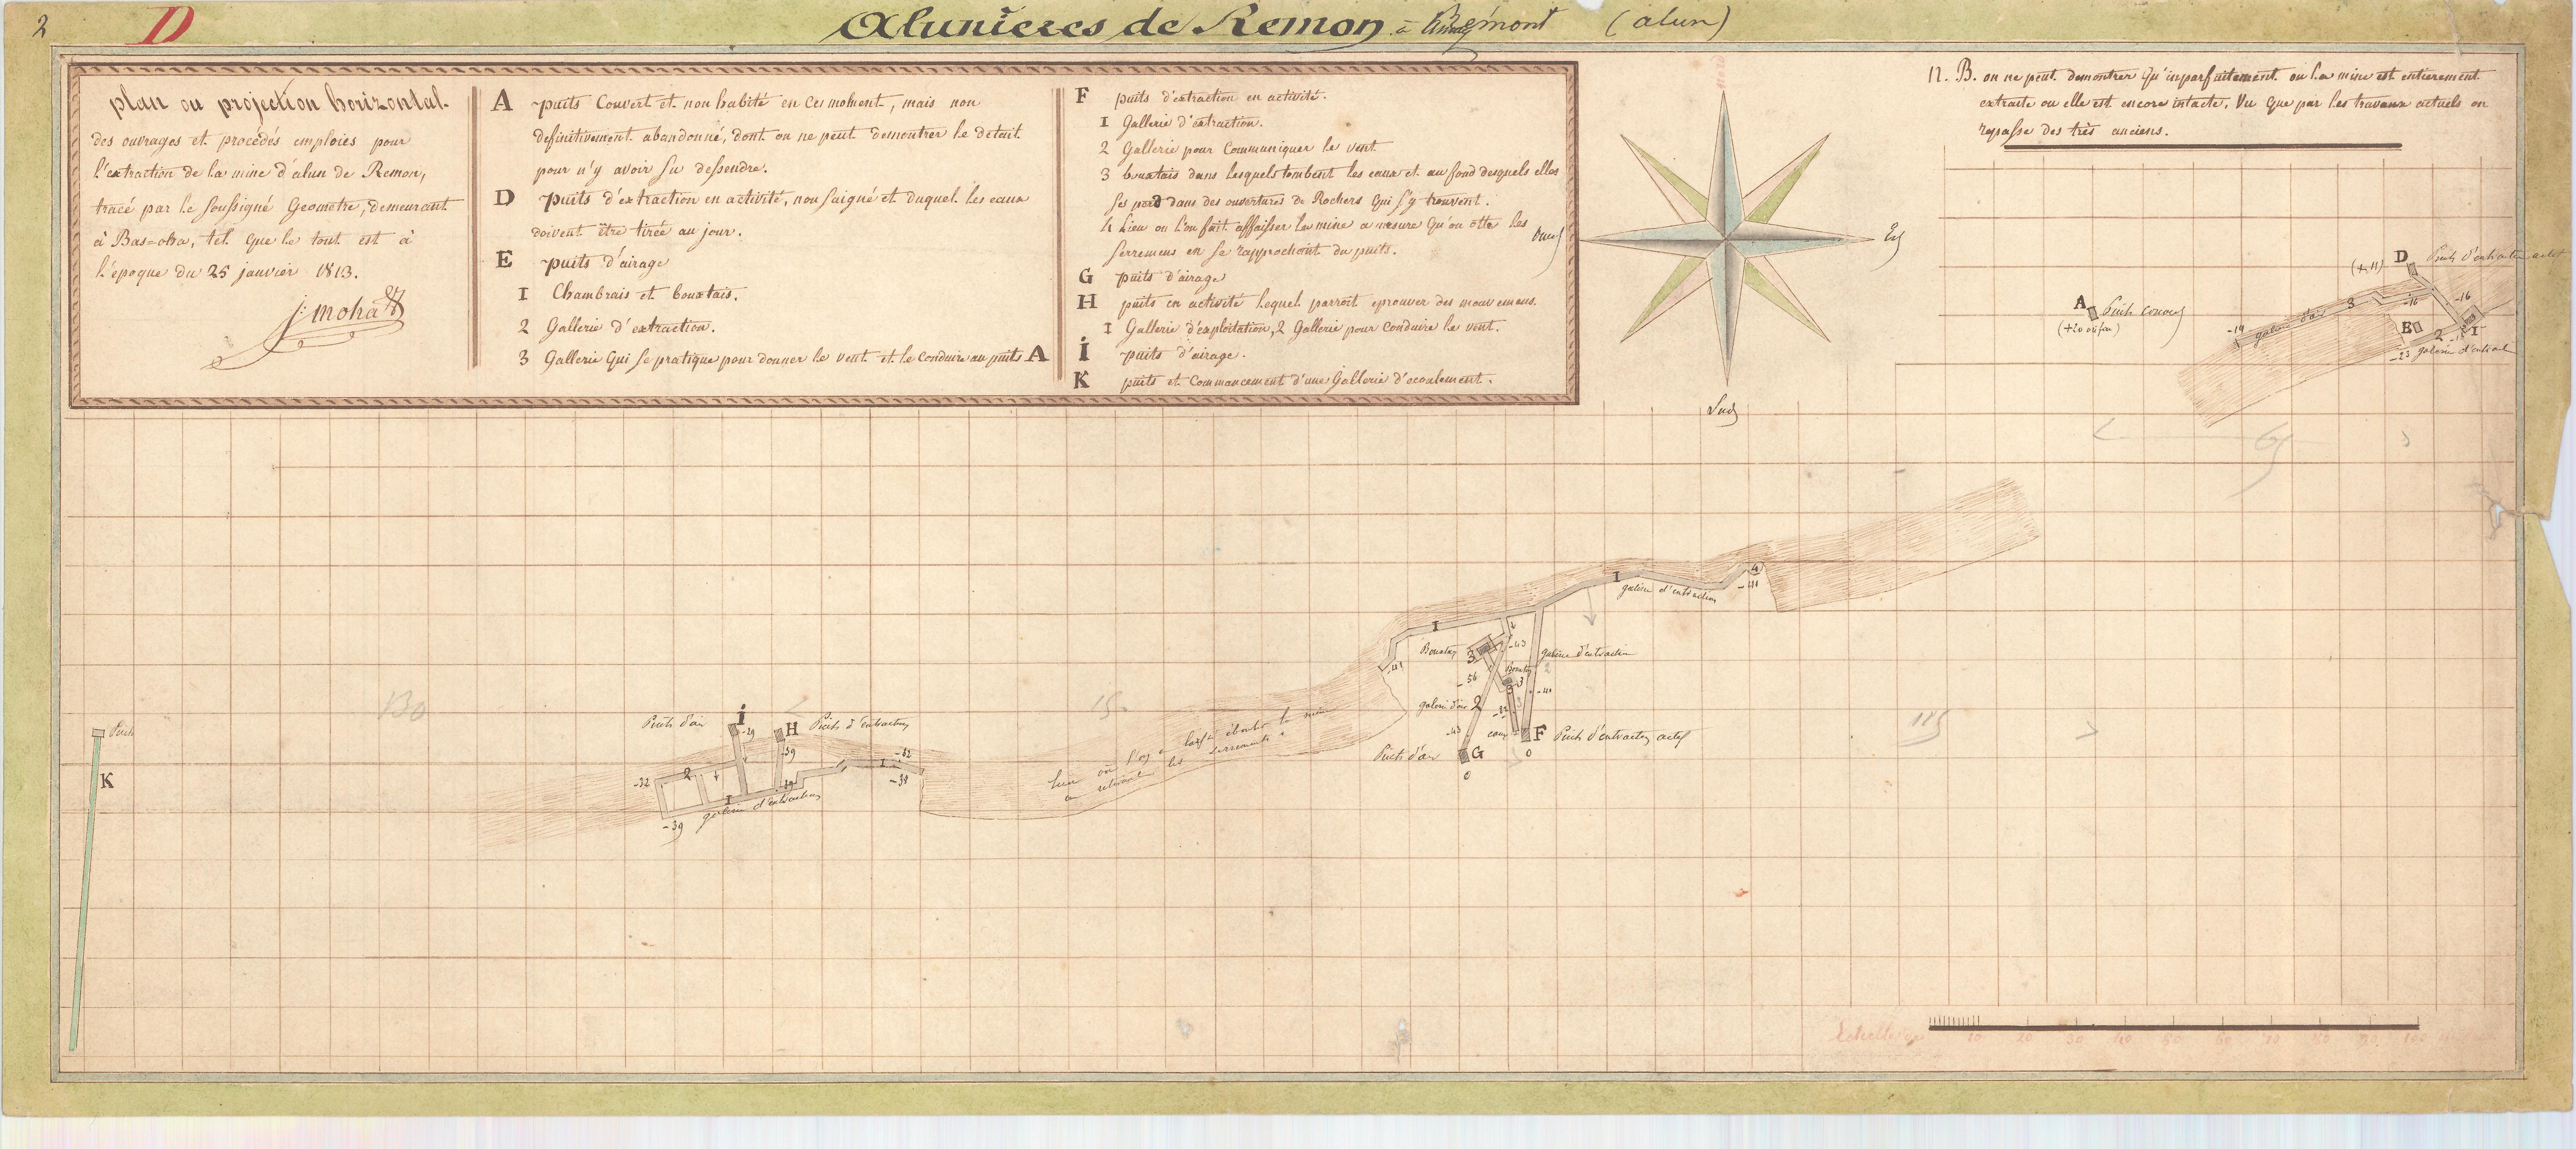 2
D
Alunieres de Remon à Ramont (alun)
plan ou projection horizontal
des ouvrages et procédés emploies pour
l'extraction de la mine d'alun de Remon,
tracé par le soussigné Geometre, demeurant
à Bas=oha, tel que le tout est à
l'epoque du 25 janvier 1813.
j: moha
A puits Couvert et non habité en ces moment, mais non
definitivement abandonné, dont on ne peut demontrer le detail
pour n'y avoir su dessendre.
D puits d'extraction en activité, non saigné et duquel les eaux
doivent être tirée au jour.
E puits d'airage
1 Chambrais et bouxtais.
2 Gallerie d'extraction.
3 Gallerie qui se pratique pour donner le vent et le conduire au puits A
F puits d'extraction en activité.
1 Gallerie d'extraction.
2 Gallerie pour Communiquer le vent
3 bouxtais dans lesquels tombent les eaux et au fond desquels elles
se perd dans des ouvertures de Rochers qui s'y trouvent.
4 Lieu ou l'on fait affaisser la mine a mesure qu'on otte les
serremens en se rapprochant du puits.
G puits d'airage
H puits en activité lequel parroit eprouver des mouvemens.
1 Gallerie d'exploitation, 2 Gallerie pour conduire le vent.
i puits d'airage.
K puits et Commancement d'une Gallerie d'ecoulement.
Ouest
Est
Sud
N. B. on ne peut demontrer qu'imparfaitement ou la mine est entierement
extraite ou elle est encore intacte, Vu que par les travaux actuels on
repasse des très anciens.
D Puits d'extraction actif
(+11)
A Puits couvert
(+20 orifice)
-19 galerie d'air 3 -16 -16
E 2 1
-23 galerie d'extraction
65
1 galerie d'extraction
4
-41
1
2
Bouxtay 3 -43
galerie d'extraction
-41
Bouxtay
3
-56
-41
galerie d'air 2
-43
eau
F Puits d'extraction actif
0
Puits d'air G
0
15
115
130
lieu où l'on a laissé ébouler la mine
en retirant les serrements
Puits d'air i
-29
H Puits d'extraction
-39
-32
2
1
-32
-39
1 galerie d'extraction
-39
Puits
K
Echelle de 10 20 30 40 50 60 70 80 90 100